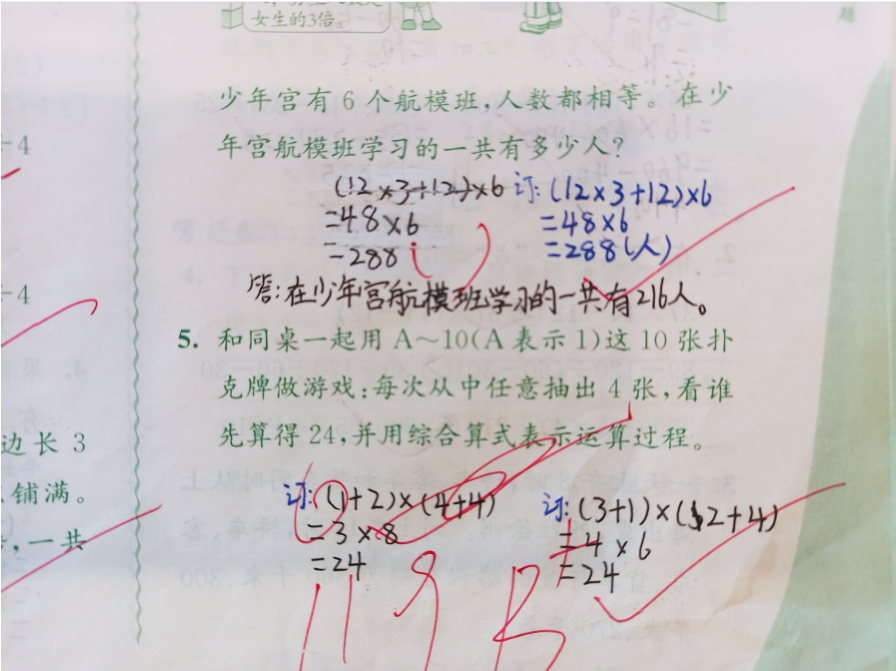 女生的3倍。
少年宫有6个航模班,人数都相等。在少
年宫航模班学习的一共有多少人?
(12×3+12)×6 订: (12×3+12)×6
=48×6 =48×6
=288 =288(人)
答:在少年宫航模班学习的一共有216人。
5. 和同桌一起用A~10(A表示1)这10张扑
克牌做游戏:每次从中任意抽出4张,看谁
先算得24,并用综合算式表示运算过程。
订: (1+2)×(4+4) 订: (3+1)×(2+4)
=3×8 =4×6
=24 =24
-4
-4
边长3
铺满。
,一共